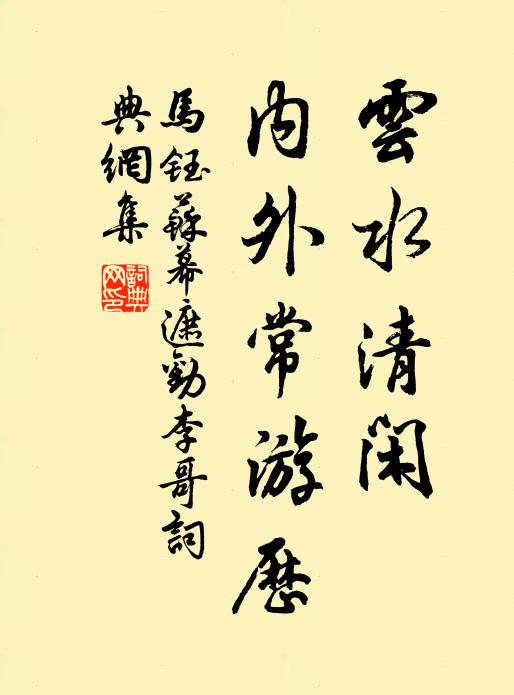 雲水清閑
内外常游歷
馬鈺蘇幕遮勸李哥詞
典網集
詞典網印